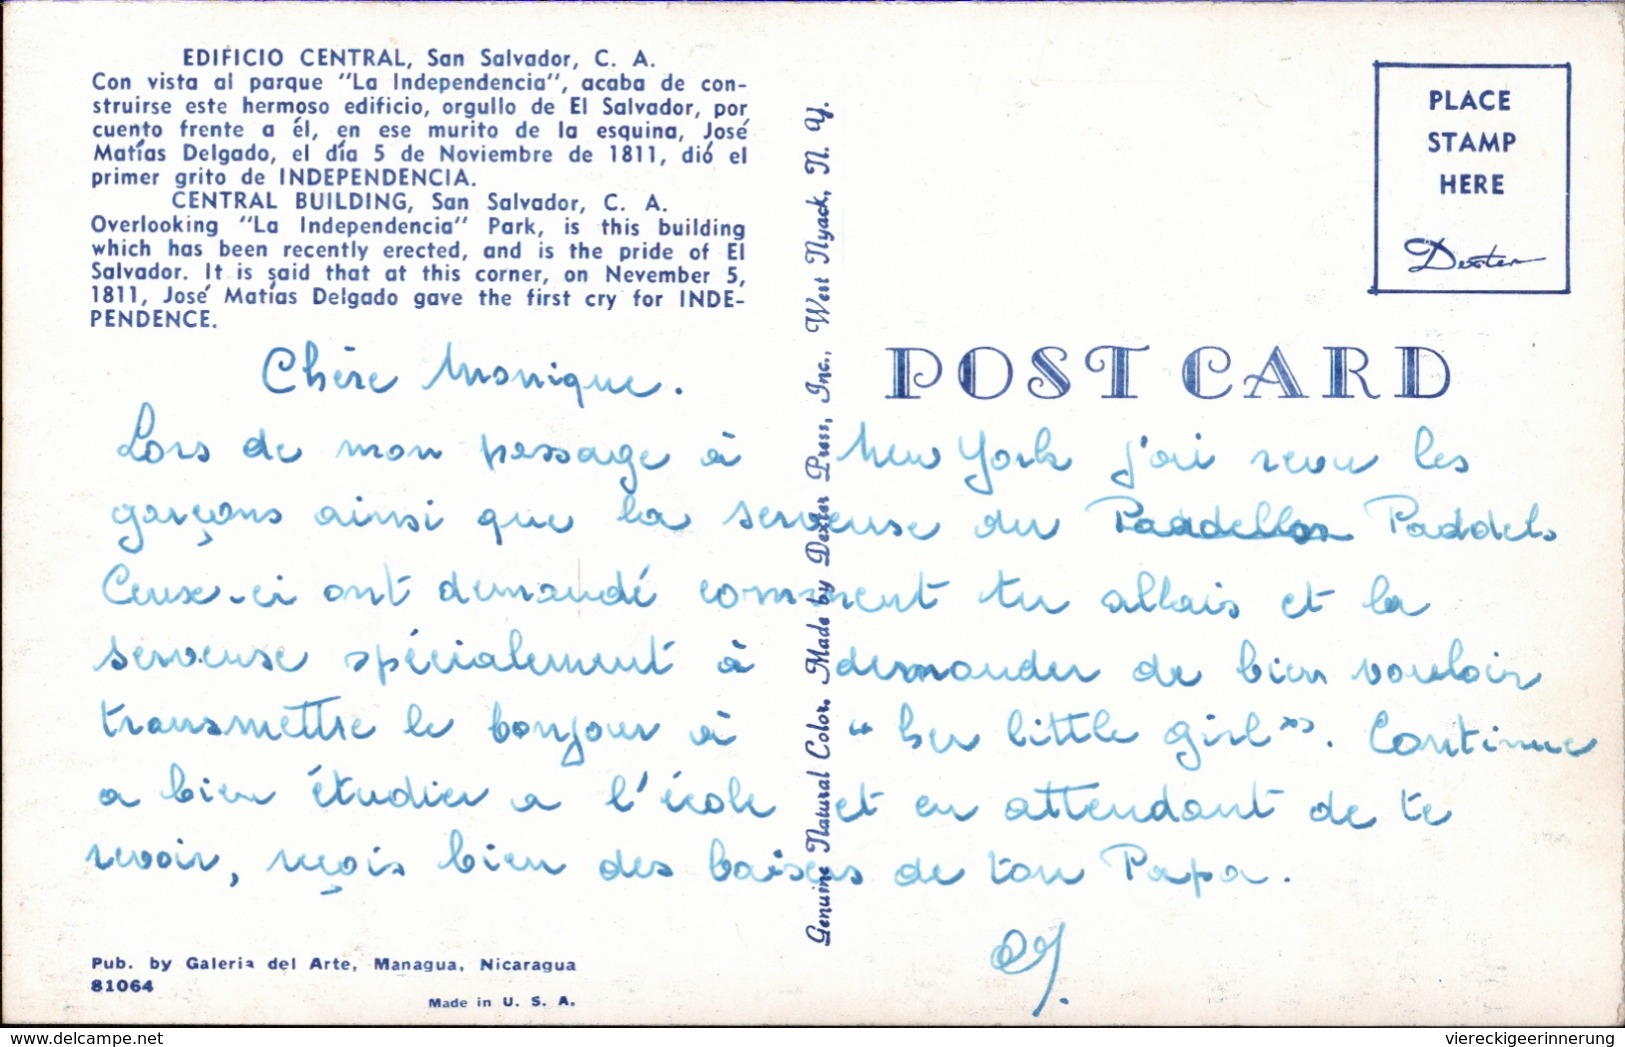 EDIFICIO CENTRAL, San Salvador, C. A.
Con vista al parque "La Independencia", acaba de con-
struirse este hermoso edificio, orgullo de El Salvador, por
cuento frente a él, en ese murito de la esquina, José
Matías Delgado, el día 5 de Noviembre de 1811, dió el
primer grito de INDEPENDENCIA.
CENTRAL BUILDING, San Salvador, C. A.
Overlooking "La Independencia" Park, is this building
which has been recently erected, and is the pride of El
Salvador. It is said that at this corner, on Nevember 5,
1811, José Matías Delgado gave the first cry for INDE-
PENDENCE.
PLACE
STAMP
HERE
Dexter
POST CARD
Genuine Natural Color. Made by Dexter Press, Inc., West Nyack, N. Y.
Chère Monique.
Lors de mon passage à New York j'ai revu les
garçons ainsi que la serveuse du Paddels
Ceux-ci ont demandé comment tu allais et la
serveuse spécialement à demander de bien vouloir
transmettre le bonjour à "her little girl". Continue
a bien étudier a l'école et en attendant de te
revoir, reçois bien des baisers de ton Papa.
Pub. by Galeria del Arte, Managua, Nicaragua
81064
Made in U. S. A.
delcampe.net
viereckigeerinnerung